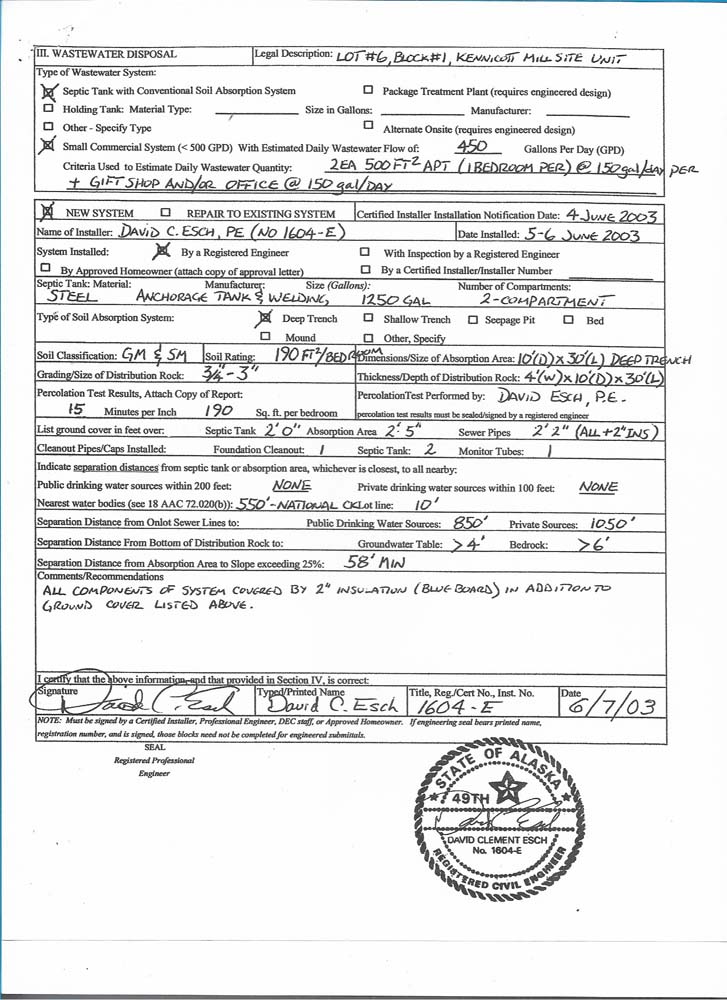 III. WASTEWATER DISPOSAL Legal Description: LOT #6, BLOCK #1, KENNICOTT MILL SITE UNIT
Type of Wastewater System:
Septic Tank with Conventional Soil Absorption System Package Treatment Plant (requires engineered design)
Holding Tank: Material Type: Size in Gallons: Manufacturer:
Other - Specify Type Alternate Onsite (requires engineered design)
Small Commercial System (< 500 GPD) With Estimated Daily Wastewater Flow of: 450 Gallons Per Day (GPD)
Criteria Used to Estimate Daily Wastewater Quantity: 2EA 500 FT² APT (1 BEDROOM PER) @ 150 gal/day PER
+ GIFT SHOP AND/OR OFFICE @ 150 gal/DAY
NEW SYSTEM REPAIR TO EXISTING SYSTEM Certified Installer Installation Notification Date: 4 JUNE 2003
Name of Installer: DAVID C. ESCH, PE (NO 1604-E) Date Installed: 5-6 JUNE 2003
System Installed: By a Registered Engineer With Inspection by a Registered Engineer
By Approved Homeowner (attach copy of approval letter) By a Certified Installer/Installer Number
Septic Tank: Material: Manufacturer: Size (Gallons): Number of Compartments:
STEEL ANCHORAGE TANK & WELDING, 1250 GAL 2-COMPARTMENT
Type of Soil Absorption System: Deep Trench Shallow Trench Seepage Pit Bed
Mound Other, Specify
Soil Classification: GM & SM Soil Rating: 190 FT²/BEDROOM Dimensions/Size of Absorption Area: 10'(D) x 30'(L) DEEP TRENCH
Grading/Size of Distribution Rock: 3/4" - 3" Thickness/Depth of Distribution Rock: 4'(W) x 10'(D) x 30'(L)
Percolation Test Results, Attach Copy of Report: PercolationTest Performed by: DAVID ESCH, P.E.
15 Minutes per Inch 190 Sq. ft. per bedroom percolation test results must be sealed/signed by a registered engineer
List ground cover in feet over: Septic Tank 2' 0" Absorption Area 2' 5" Sewer Pipes 2' 2" (ALL + 2" INS)
Cleanout Pipes/Caps Installed: Foundation Cleanout: 1 Septic Tank: 2 Monitor Tubes: 1
Indicate separation distances from septic tank or absorption area, whichever is closest, to all nearby:
Public drinking water sources within 200 feet: NONE Private drinking water sources within 100 feet: NONE
Nearest water bodies (see 18 AAC 72.020(b)): 550' - NATIONAL CK Lot line: 10'
Separation Distance from Onlot Sewer Lines to: Public Drinking Water Sources: 850' Private Sources: 1050'
Separation Distance From Bottom of Distribution Rock to: Groundwater Table: >4' Bedrock: >6'
Separation Distance from Absorption Area to Slope exceeding 25%: 58' MIN
Comments/Recommendations
ALL COMPONENTS OF SYSTEM COVERED BY 2" INSULATION (BLUE BOARD) IN ADDITION TO
GROUND COVER LISTED ABOVE.
I certify that the above information, and that provided in Section IV, is correct:
Signature Typed/Printed Name Title, Reg./Cert No., Inst. No. Date
David C. Esch David C. Esch 1604-E 6/7/03
NOTE: Must be signed by a Certified Installer, Professional Engineer, DEC staff, or Approved Homeowner. If engineering seal bears printed name,
registration number, and is signed, those blocks need not be completed for engineered submittals.
SEAL
Registered Professional
Engineer
STATE OF ALASKA
49TH
DAVID CLEMENT ESCH
No. 1604-E
REGISTERED CIVIL ENGINEER